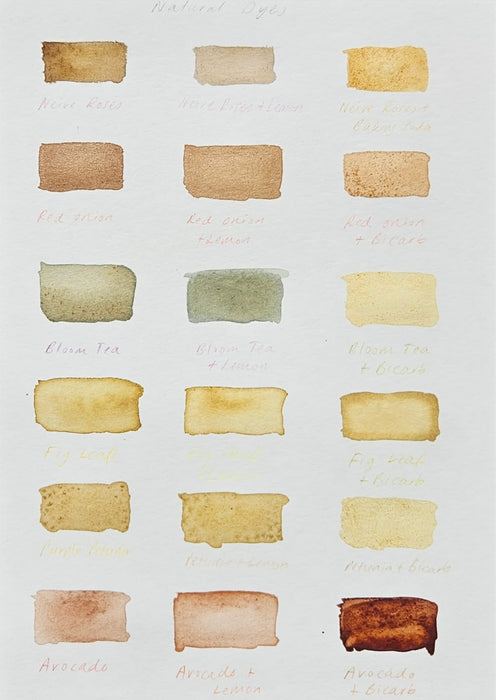 Natural Dyes
Neive Roses
Neive Roses + Lemon
Neive Roses +
Baking Soda
Red onion
Red onion
+ Lemon
Red onion
+ Bicarb
Bloom Tea
Bloom Tea
+ Lemon
Bloom Tea
+ Bicarb
Fig Leaf
Fig Leaf
Fig Leaf
+ Bicarb
Purple Petunia
Petunia + Lemon
Petunia + Bicarb
Avocado
Avocado +
Lemon
Avocado
+ Bicarb